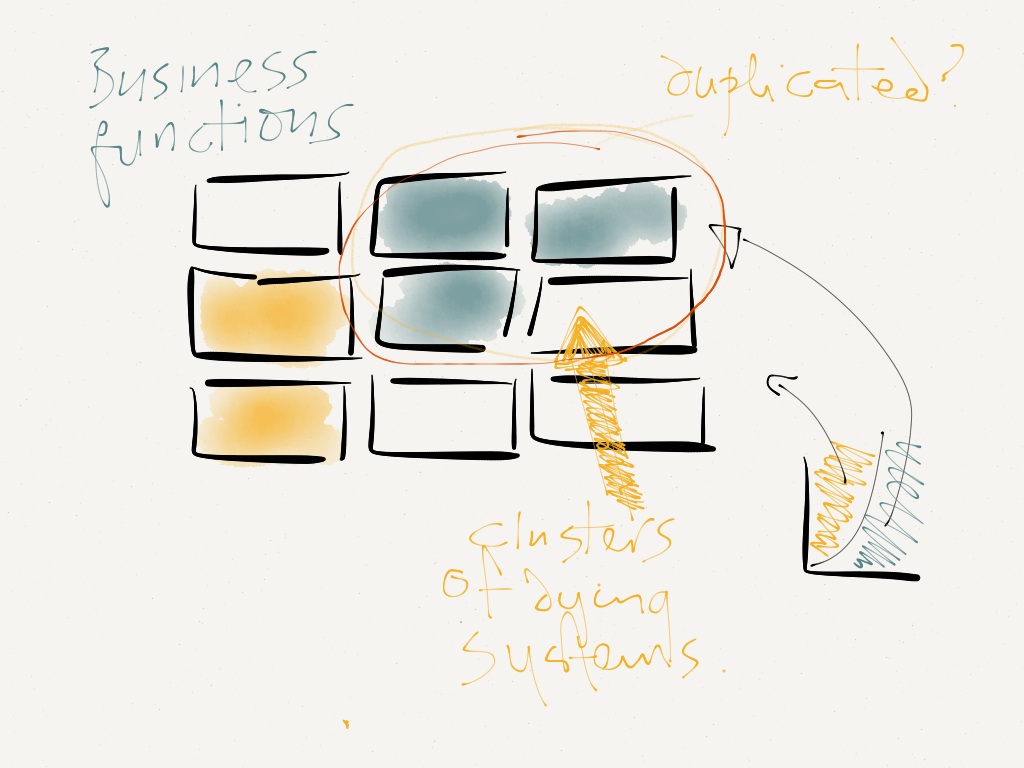 Business
functions
duplicated?
clusters
of dying
systems.